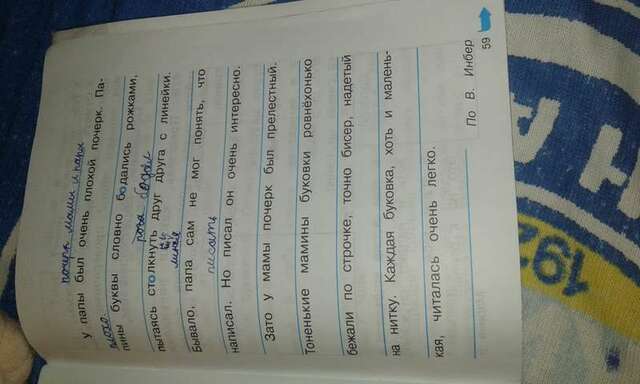 почерк мамы и папы
У папы был очень плохой почерк. Па-
плохо.
пины буквы словно бодались рожками,
рога бодал
пытаясь столкнуть друг друга с линейки.
линия
Бывало, папа сам не мог понять, что
писать
написал. Но писал он очень интересно.
Зато у мамы почерк был прелестный.
Тоненькие мамины буковки ровнёхонько
бежали по строчке, точно бисер, надетый
на нитку. Каждая буковка, хоть и малень-
кая, читалась очень легко.
По В. Инбер
59
192